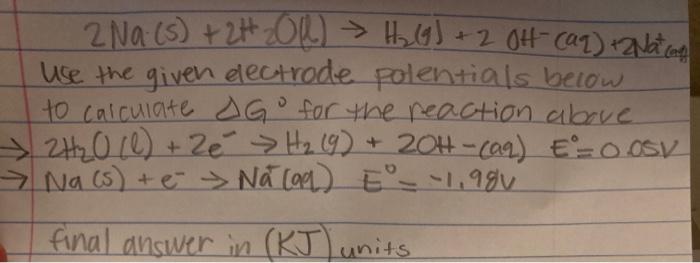 2Na(s) + 2H₂O(l) → H₂(g) + 2 OH⁻(aq) + 2Na⁺(aq)
Use the given electrode potentials below
to calculate ΔG° for the reaction above
→ 2H₂O(l) + 2e⁻ → H₂(g) + 2OH-(aq) E°=0.05V
→ Na(s) + e⁻ → Na⁻(aq) E°= -1.98V
final answer in (KJ) units